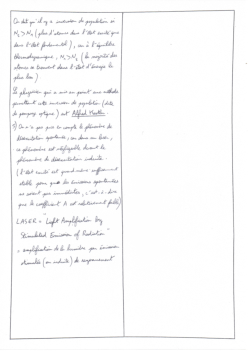 On dit qu'il y a inversion de population si
N₂ > N₁ (plus d'atomes dans l'état excité que
dans l'état fondamental), car à l'équilibre
thermodynamique, N₁ > N₂ (la majorité des
atomes se trouvent dans l'état d'énergie le
plus bas)
Le physicien qui a mis au point une méthode
permettant cette inversion de population (dite
de pompage optique) est Alfred Kastler.
On n'a pas pris en compte le phénomène de
désexcitation spontanée, car dans un laser,
ce phénomène est négligeable devant le
phénomène de désexcitation induite.
(l'état excité est quand même suffisamment
stable pour que les émissions spontanées
ne soient pas immédiates, c'est-à-dire
que le coefficient A est relativement faible)
LASER = "Light Amplification by
Stimulated Emission of Radiation"
= amplification de la lumière par émission
stimulée (ou induite) de rayonnement